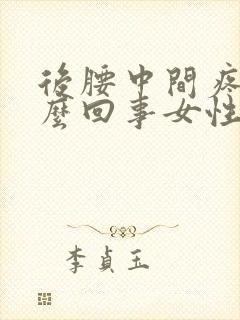 後腰中間疼
麼回事女性
李貞玉